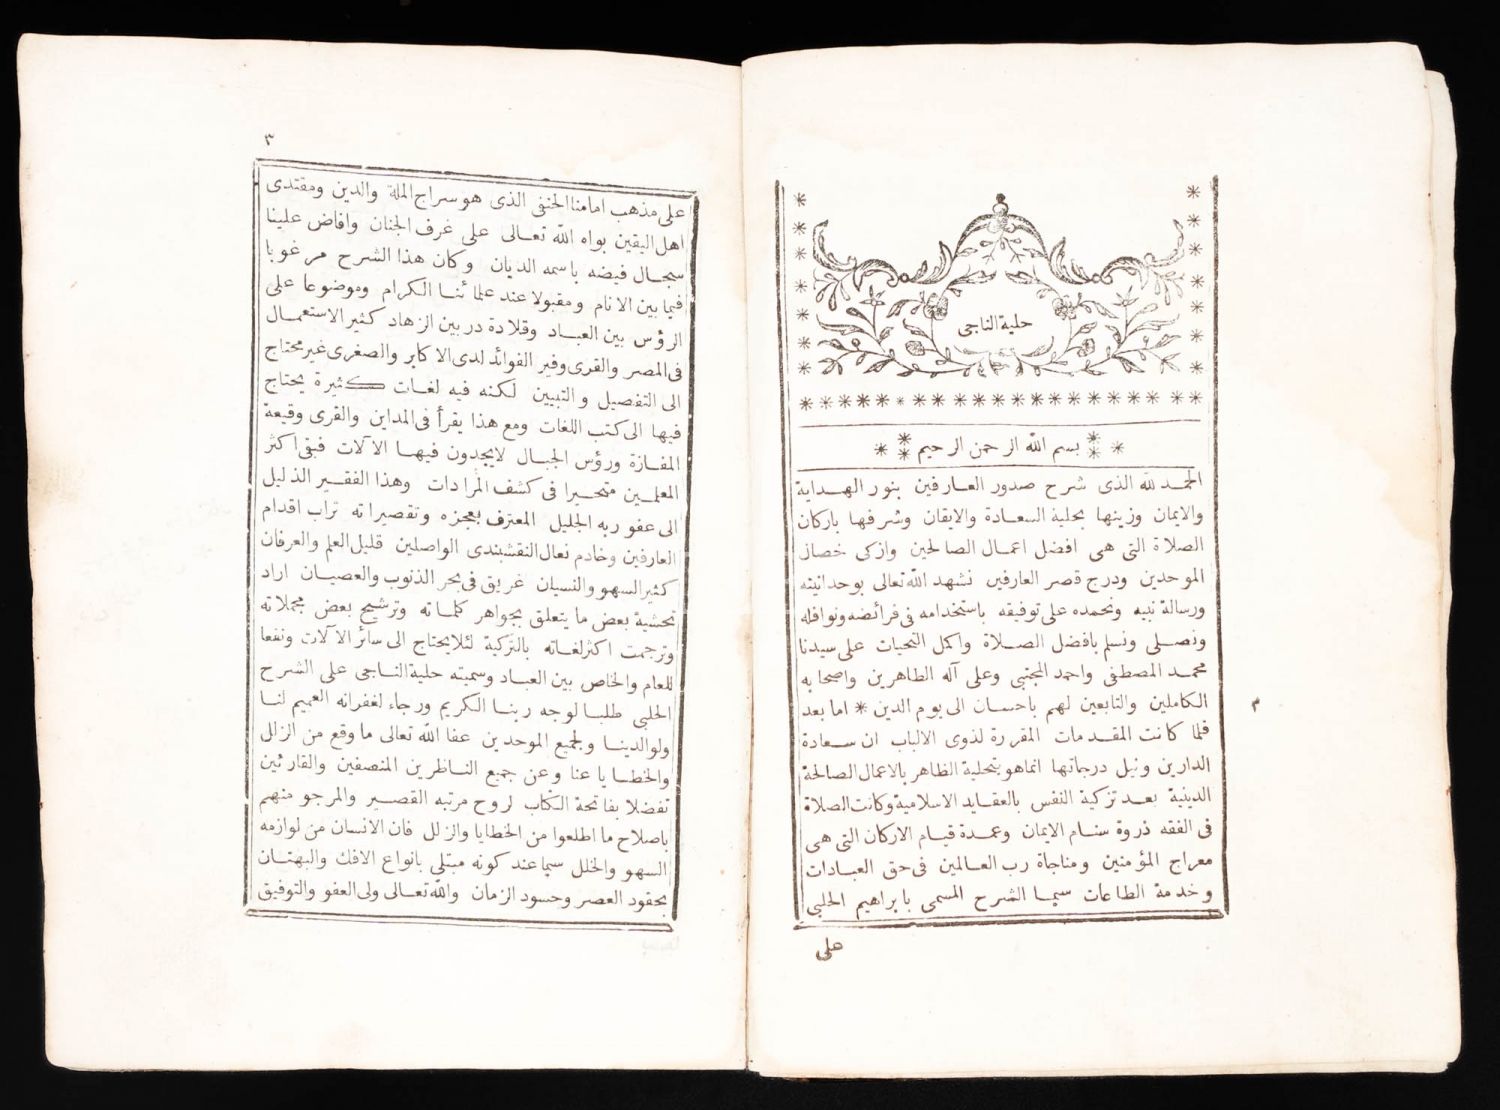 حلية الناجى
بسم الله الرحمن الرحيم
الحمد لله الذى شرح صدور العارفين بنور الهداية
والايمان وزينها بحلية السعادة والايقان وشرفها باركان
الصلاة التى هى افضل اعمال الصالحين وازكى خصال
الموحدين ودرج قصر العارفين نشهد الله تعالى بوحدانيته
ورسالة نبيه ونحمده على توفيقه باستخدامه فى فرائضه ونوافله
ونصلى ونسلم بافضل الصلاة واكمل التحيات على سيدنا
محمد المصطفى واحمد المجتبى وعلى آله الطاهرين واصحابه
الكاملين والتابعين لهم باحسان الى يوم الدين * اما بعد
فلما كانت المقدمات المقررة لذوى الالباب ان سعادة
الدارين ونيل درجاتها انما هو بتحلية الظاهر بالاعمال الصالحة
الدينية بعد تزكية النفس بالعقايد الاسلامية وكانت الصلاة
فى الفقه ذروة سنام الايمان وعمدة قيام الاركان التى هى
معراج المؤمنين ومناجاة رب العالمين فى حق العبادات
وخدمة الطاعات سيما الشرح المسمى بابراهيم الحلبى
على
٣
على مذهب امامنا الحنفى الذى هو سراج الملة والدين ومقتدى
اهل اليقين بواه الله تعالى على غرف الجنان وافاض علينا
سجال فيضه باسمه الديان وكان هذا الشرح مرغوبا
فيما بين الانام ومقبولا عند علمائنا الكرام وموضوعا على
الرؤس بين العباد وقلادة در بين الزهاد كثير الاستعمال
فى المصر والقرى وفير الفوائد لدى الاكابر والصغرى غير محتاج
الى التفصيل والتبيين لكنه فيه لغات كثيرة يحتاج
فيها الى كتب اللغات ومع هذا يقرأ فى المداين والقرى وقيعة
المفازة ورؤس الجبال لايجدون فيها الآلات فبقى اكثر
المعلمين متحيرا فى كشف المرادات وهذا الفقير الذليل
الى عفو ربه الجليل المعترف بعجزه وتقصيراته تراب اقدام
العارفين وخادم نعال النقشبندى الواصلين قليل العلم والعرفان
كثير السهو والنسيان غريق فى بحر الذنوب والعصيان اراد
تحشية بعض ما يتعلق بجواهر كلماته وترشيح بعض مجملاته
وترجمت اكثر لغاته بالتركية لئلا يحتاج الى سائر الآلات ونفعا
للعام والخاص بين العباد وسميته حلية الناجى على الشرح
الحلبى طلبا لوجه ربنا الكريم ورجاء لغفرانه العميم لنا
ولوالدينا ولجميع الموحدين عفا الله تعالى ما وقع من الزلل
والخطايا عنا وعن جميع الناظرين المنصفين والقارئين
تفضلا بفاتحة الكتاب لروح مرتبه القصير والمرجو منهم
باصلاح ما اطلعوا من الخطايا والزلل فان الانسان من لوازمه
السهو والخلل سيما عند كونه مبتلى بانواع الافك والبهتان
بحقود العصر وحسود الزمان والله تعالى ولى العفو والتوفيق